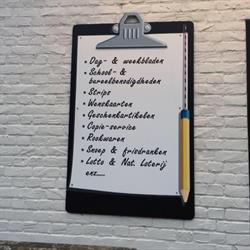 • Dag- & weekbladen
• School- &
bureelbenodigdheden
• Strips
• Wenskaarten
• Geschenkartikelen
• Copie-service
• Rookwaren
• Snoep & frisdranken
• Lotto & Nat. Loterij
enz.....